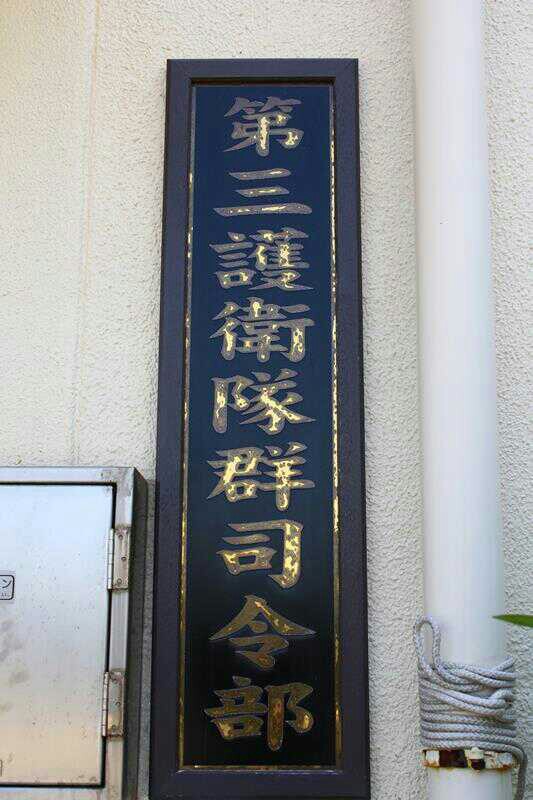 第三護衛隊群司令部
ン